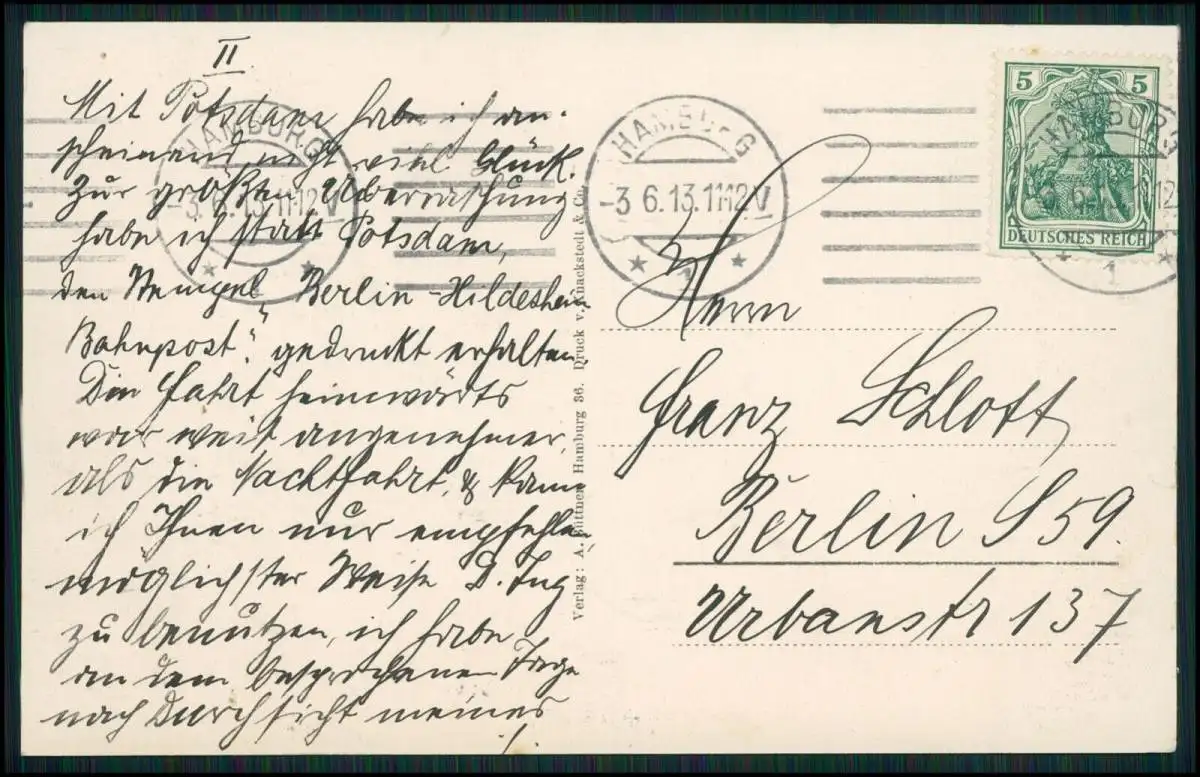 II
Mit Potsdam habe ich an-
scheinend nicht viel Glück.
Zur größten Überraschung
habe ich statt Potsdam,
den Stempel „Berlin-Hildesheim
Bahnpost“ gedruckt erhalten.
Die Fahrt heimwärts
war weit angenehmer
als die Nachtfahrt, & kann
ich Ihnen nur empfehlen
möglichster Weise D. Zug
zu benutzen, ich habe
an dem besprochenen Tage
nach Durchsicht meines
/.
HAMBURG
-3.6.13.11-12V
HAMBURG
-3.6.13.11-12V
* 1 *
5 5
DEUTSCHES REICH
HAMBURG
1
Verlag: A. Büttner, Hamburg 36. Druck v. Knackstedt & Co.
Herrn
Franz Schlott
Berlin S 59.
Urbanstr 137